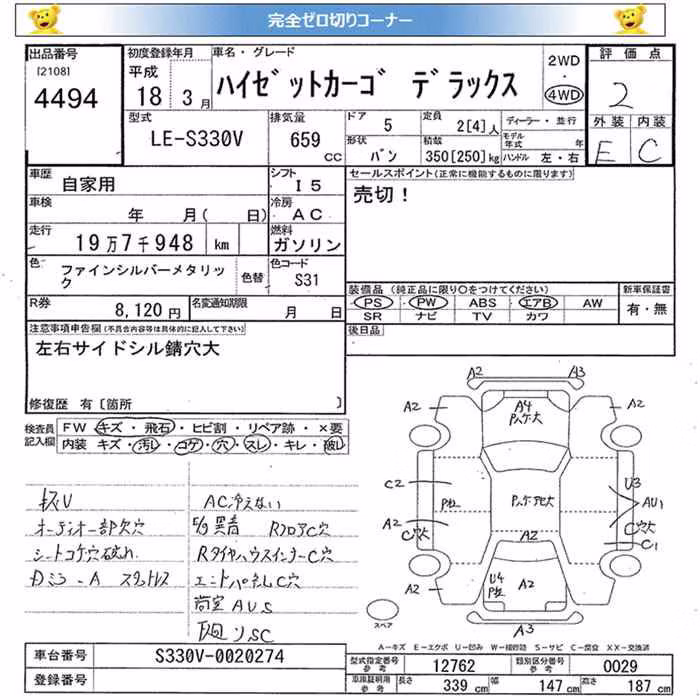 完全ゼロ切りコーナー
出品番号
[2108]
4494
初度登録年月
平成
18 3月
車名・グレード
ハイゼットカーゴ デラックス
2WD
・
4WD
評価点
2
外装 内装
E C
型式
LE-S330V
排気量
659
CC
ドア
5
定員
2[4]人
ディーラー・並行
形状
バン
積載
350[250]kg
モデル年式 年
ハンドル 左・右
車歴
自家用
シフト
I5
セールスポイント(正常に機能するものに限ります)
売切!
車検
年 月( 日)
冷房
AC
走行
19万7千948 km
燃料
ガソリン
色
ファインシルバーメタリック
色替
色コード
S31
R券
8,120円
名変通知期限
月 日
装備品(純正品に限り○をつけてください)
PS PW ABS エアB AW
SR ナビ TV カワ
新車保証書
有・無
後日品
注意事項申告欄(不具合内容等は具体的に記入して下さい)
左右サイドシル錆穴大
修復歴 有[箇所 ]
検査員記入欄
FW キズ・飛石・ヒビ割・リペア跡・×要
内装 キズ・汚レ・コゲ・穴・スレ・キレ・破レ
オーディオ一部欠穴
シートコゲ穴破れ
AC冷えない
RフロアC穴
RタイヤハウスインナーC穴
エンドパネルC穴
A2 A3
A2 A4 A2
C2 U3
A2 AU1
C穴大 C穴大
C1
A2
U4 A2
A2 A2
A3
スペア
A-キズ E-エクボ U-凹み W-補修跡 S-サビ C-腐食 XX-交換済
車台番号
S330V-0020274
登録番号
型式指定番号
参考
12762
類別区分番号
参考
0029
車庫証明用
参考
長さ 339 cm
幅 147 cm
高さ 187 cm